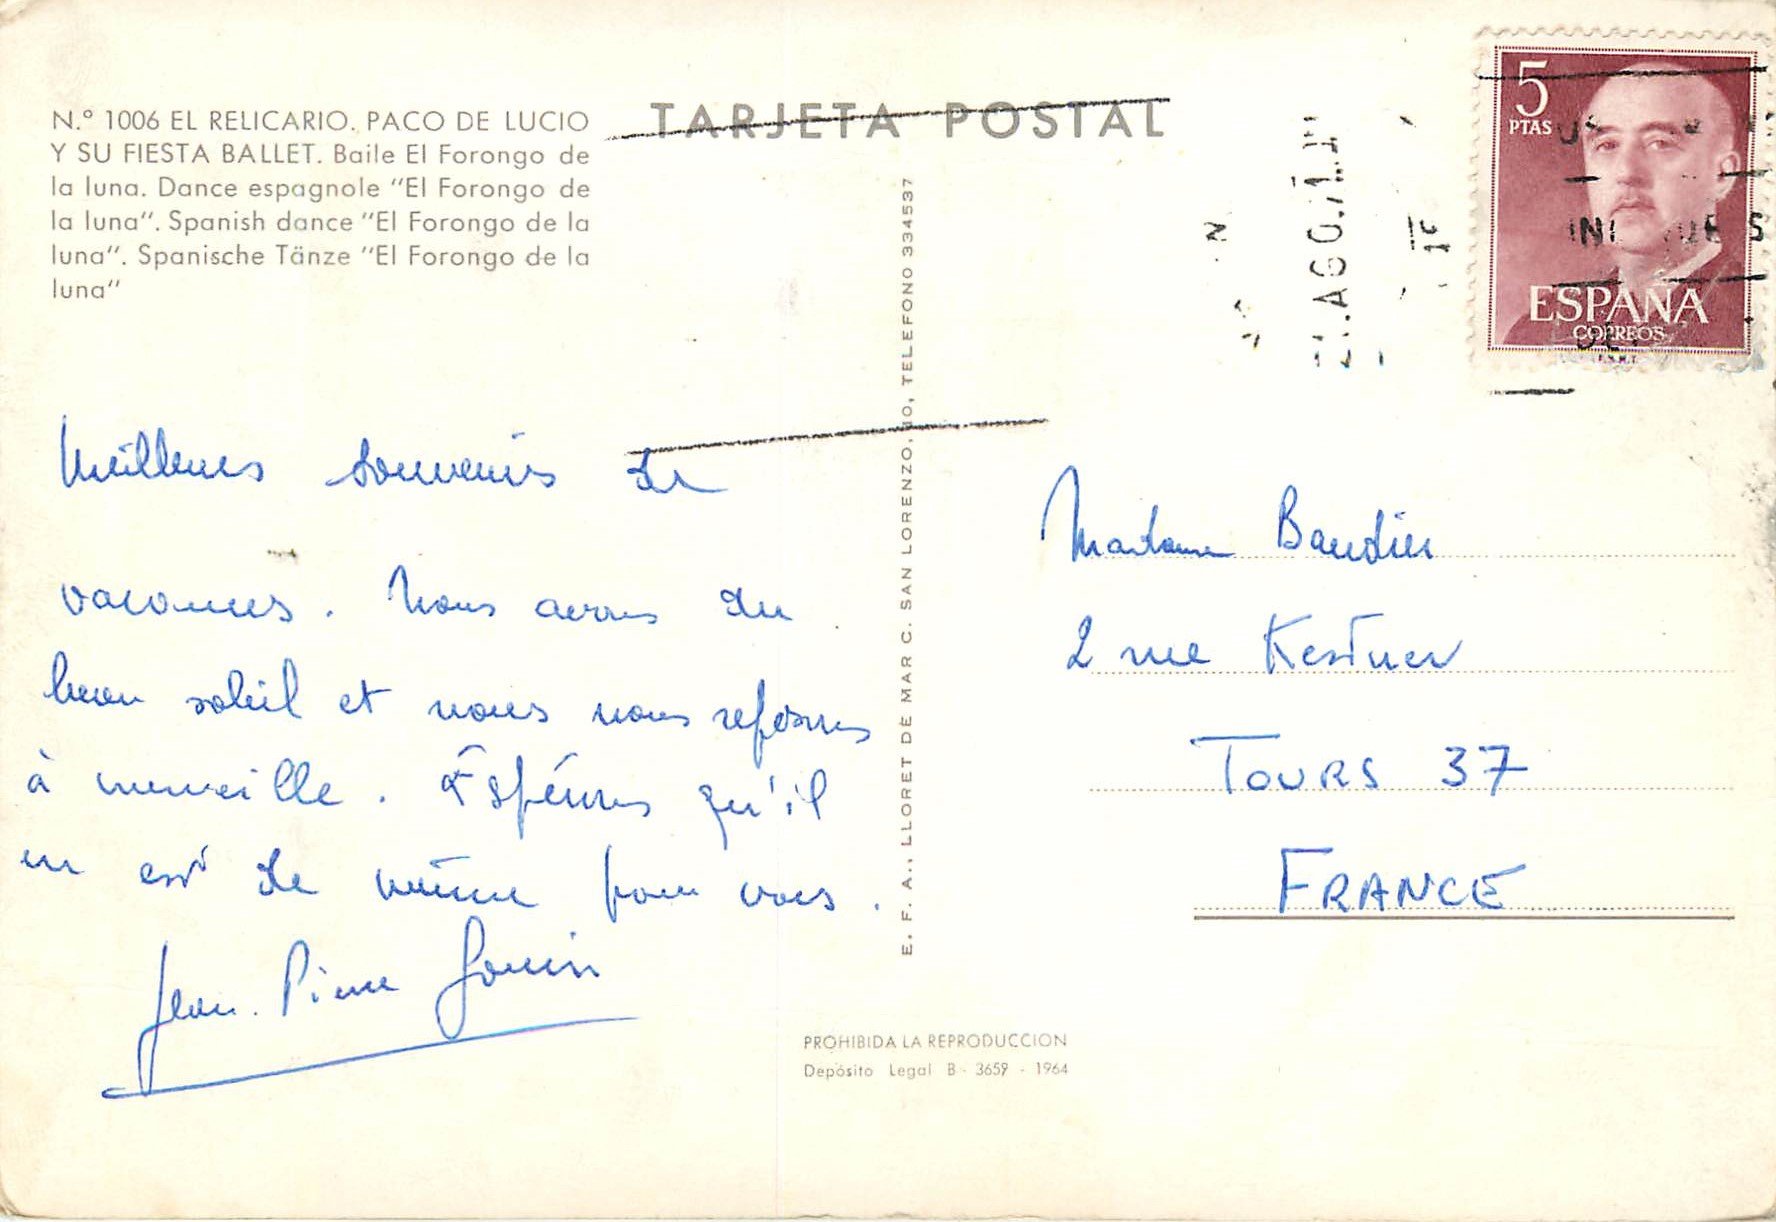 N.º 1006 EL RELICARIO. PACO DE LUCIO
Y SU FIESTA BALLET. Baile El Forongo de
la luna. Dance espagnole "El Forongo de
la luna". Spanish dance "El Forongo de la
luna". Spanische Tänze "El Forongo de la
luna"
TARJETA POSTAL
5
PTAS
ESPAÑA
CORREOS
F.N.M.T.
AGO.71
Meilleurs souvenirs de
vacances. Nous avons du
beau soleil et nous nous reposons
à merveille. Espérons qu'il
en est de même pour vous.
Jean-Pierre Gouin
E. F. A., LLORET DE MAR C. SAN LORENZO, 10, TELEFONO 334537
Madame Baudier
2 rue Kestner
TOURS 37
FRANCE
PROHIBIDA LA REPRODUCCION
Depósito Legal B - 3659 - 1964